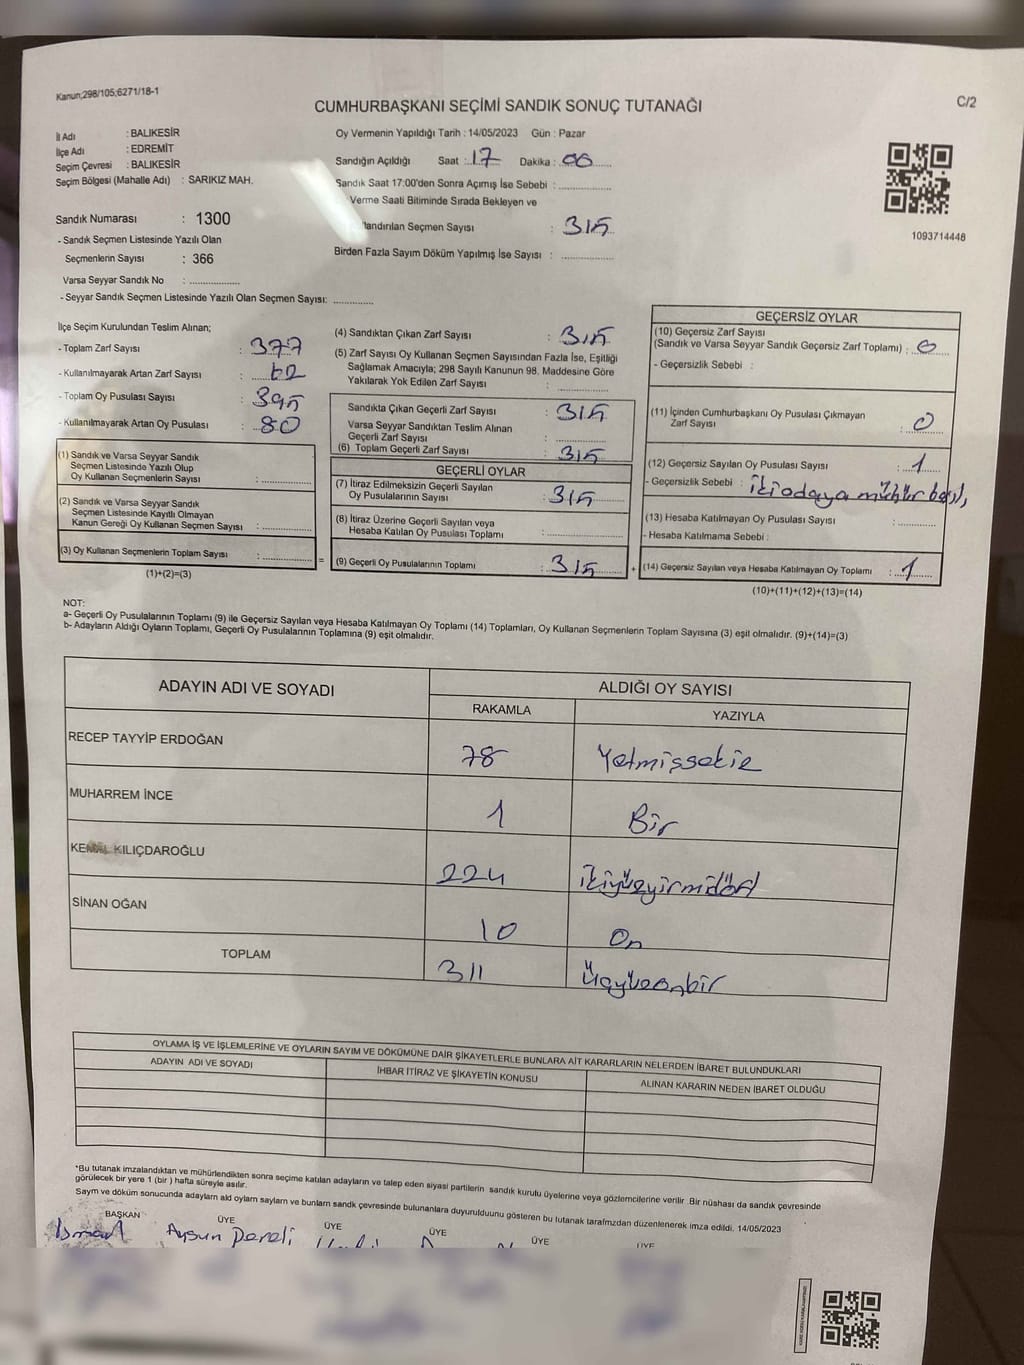 Kanun;298/105;6271/18-1
CUMHURBAŞKANI SEÇİMİ SANDIK SONUÇ TUTANAĞI
C/2
İl Adı : BALIKESİR
İlçe Adı : EDREMİT
Seçim Çevresi : BALIKESİR
Seçim Bölgesi (Mahalle Adı) : SARIKIZ MAH.
Sandık Numarası : 1300
- Sandık Seçmen Listesinde Yazılı Olan
Seçmenlerin Sayısı : 366
Varsa Seyyar Sandık No : ..................
- Seyyar Sandık Seçmen Listesinde Yazılı Olan Seçmen Sayısı: ..............
Oy Vermenin Yapıldığı Tarih : 14/05/2023 Gün : Pazar
Sandığın Açıldığı Saat : 17 Dakika : 06
Sandık Saat 17:00'den Sonra Açımış İse Sebebi : ..................
Verme Saati Bitiminde Sırada Bekleyen ve
landırılan Seçmen Sayısı : 315
Birden Fazla Sayım Döküm Yapılmış İse Sayısı : ..................
1093714448
İlçe Seçim Kurulundan Teslim Alınan;
- Toplam Zarf Sayısı : 377
- Kullanılmayarak Artan Zarf Sayısı : 62
- Toplam Oy Pusulası Sayısı : 395
- Kullanılmayarak Artan Oy Pusulası : 80
(1) Sandık ve Varsa Seyyar Sandık
Seçmen Listesinde Yazılı Olup
Oy Kullanan Seçmenlerin Sayısı : ..................
(2) Sandık ve Varsa Seyyar Sandık
Seçmen Listesinde Kayıtlı Olmayan
Kanun Gereği Oy Kullanan Seçmen Sayısı : ..................
(3) Oy Kullanan Seçmenlerin Toplam Sayısı : .................. =
(1)+(2)=(3)
(4) Sandıktan Çıkan Zarf Sayısı : 315
(5) Zarf Sayısı Oy Kullanan Seçmen Sayısından Fazla İse, Eşitliği
Sağlamak Amacıyla; 298 Sayılı Kanunun 98. Maddesine Göre
Yakılarak Yok Edilen Zarf Sayısı : ..................
Sandıkta Çıkan Geçerli Zarf Sayısı : 315
Varsa Seyyar Sandıktan Teslim Alınan
Geçerli Zarf Sayısı : ..................
(6) Toplam Geçerli Zarf Sayısı : 315
GEÇERLİ OYLAR
(7) İtiraz Edilmeksizin Geçerli Sayılan
Oy Pusulalarının Sayısı : 315
(8) İtiraz Üzerine Geçerli Sayılan veya
Hesaba Katılan Oy Pusulası Toplamı : ..................
(9) Geçerli Oy Pusulalarının Toplamı : 315 +
GEÇERSİZ OYLAR
(10) Geçersiz Zarf Sayısı
(Sandık ve Varsa Seyyar Sandık Geçersiz Zarf Toplamı) : 0
- Geçersizlik Sebebi :
(11) İçinden Cumhurbaşkanı Oy Pusulası Çıkmayan
Zarf Sayısı : 0
(12) Geçersiz Sayılan Oy Pusulası Sayısı : 1
- Geçersizlik Sebebi : iki odaya mühür
(13) Hesaba Katılmayan Oy Pusulası Sayısı : ..................
- Hesaba Katılmama Sebebi :
(14) Geçersiz Sayılan veya Hesaba Katılmayan Oy Toplamı : 1
(10)+(11)+(12)+(13)=(14)
NOT:
a- Geçerli Oy Pusulalarının Toplamı (9) ile Geçersiz Sayılan veya Hesaba Katılmayan Oy Toplamı (14) Toplamları, Oy Kullanan Seçmenlerin Toplam Sayısına (3) eşit olmalıdır. (9)+(14)=(3)
b- Adayların Aldığı Oyların Toplamı, Geçerli Oy Pusulalarının Toplamına (9) eşit olmalıdır.
ADAYIN ADI VE SOYADI
ALDIĞI OY SAYISI
RAKAMLA YAZIYLA
RECEP TAYYİP ERDOĞAN 78 Yetmişsekiz
MUHARREM İNCE 1 Bir
KEMAL KILIÇDAROĞLU 224 ikiyüzyirmidört
SİNAN OĞAN 10 On
TOPLAM 311 Üçyüzonbir
OYLAMA İŞ VE İŞLEMLERİNE VE OYLARIN SAYIM VE DÖKÜMÜNE DAİR ŞİKAYETLERLE BUNLARA AİT KARARLARIN NELERDEN İBARET BULUNDUKLARI
ADAYIN ADI VE SOYADI İHBAR İTİRAZ VE ŞİKAYETİN KONUSU ALINAN KARARIN NEDEN İBARET OLDUĞU
*Bu tutanak imzalandıktan ve mühürlendikten sonra seçime katılan adayların ve talep eden siyasi partilerin sandık kurulu üyelerine veya gözlemcilerine verilir .Bir nüshası da sandık çevresinde
görülecek bir yere 1 (bir ) hafta süreyle asılır.
Sayım ve döküm sonucunda adayların ald oyların sayların ve bunların sandk çevresinde bulunanlara duyurulduunu gösteren bu tutanak tarafmzdan düzenlenerek imza edildi. 14/05/2023
BAŞKAN ÜYE ÜYE ÜYE ÜYE ÜYE
İsmail Aysun Dereli